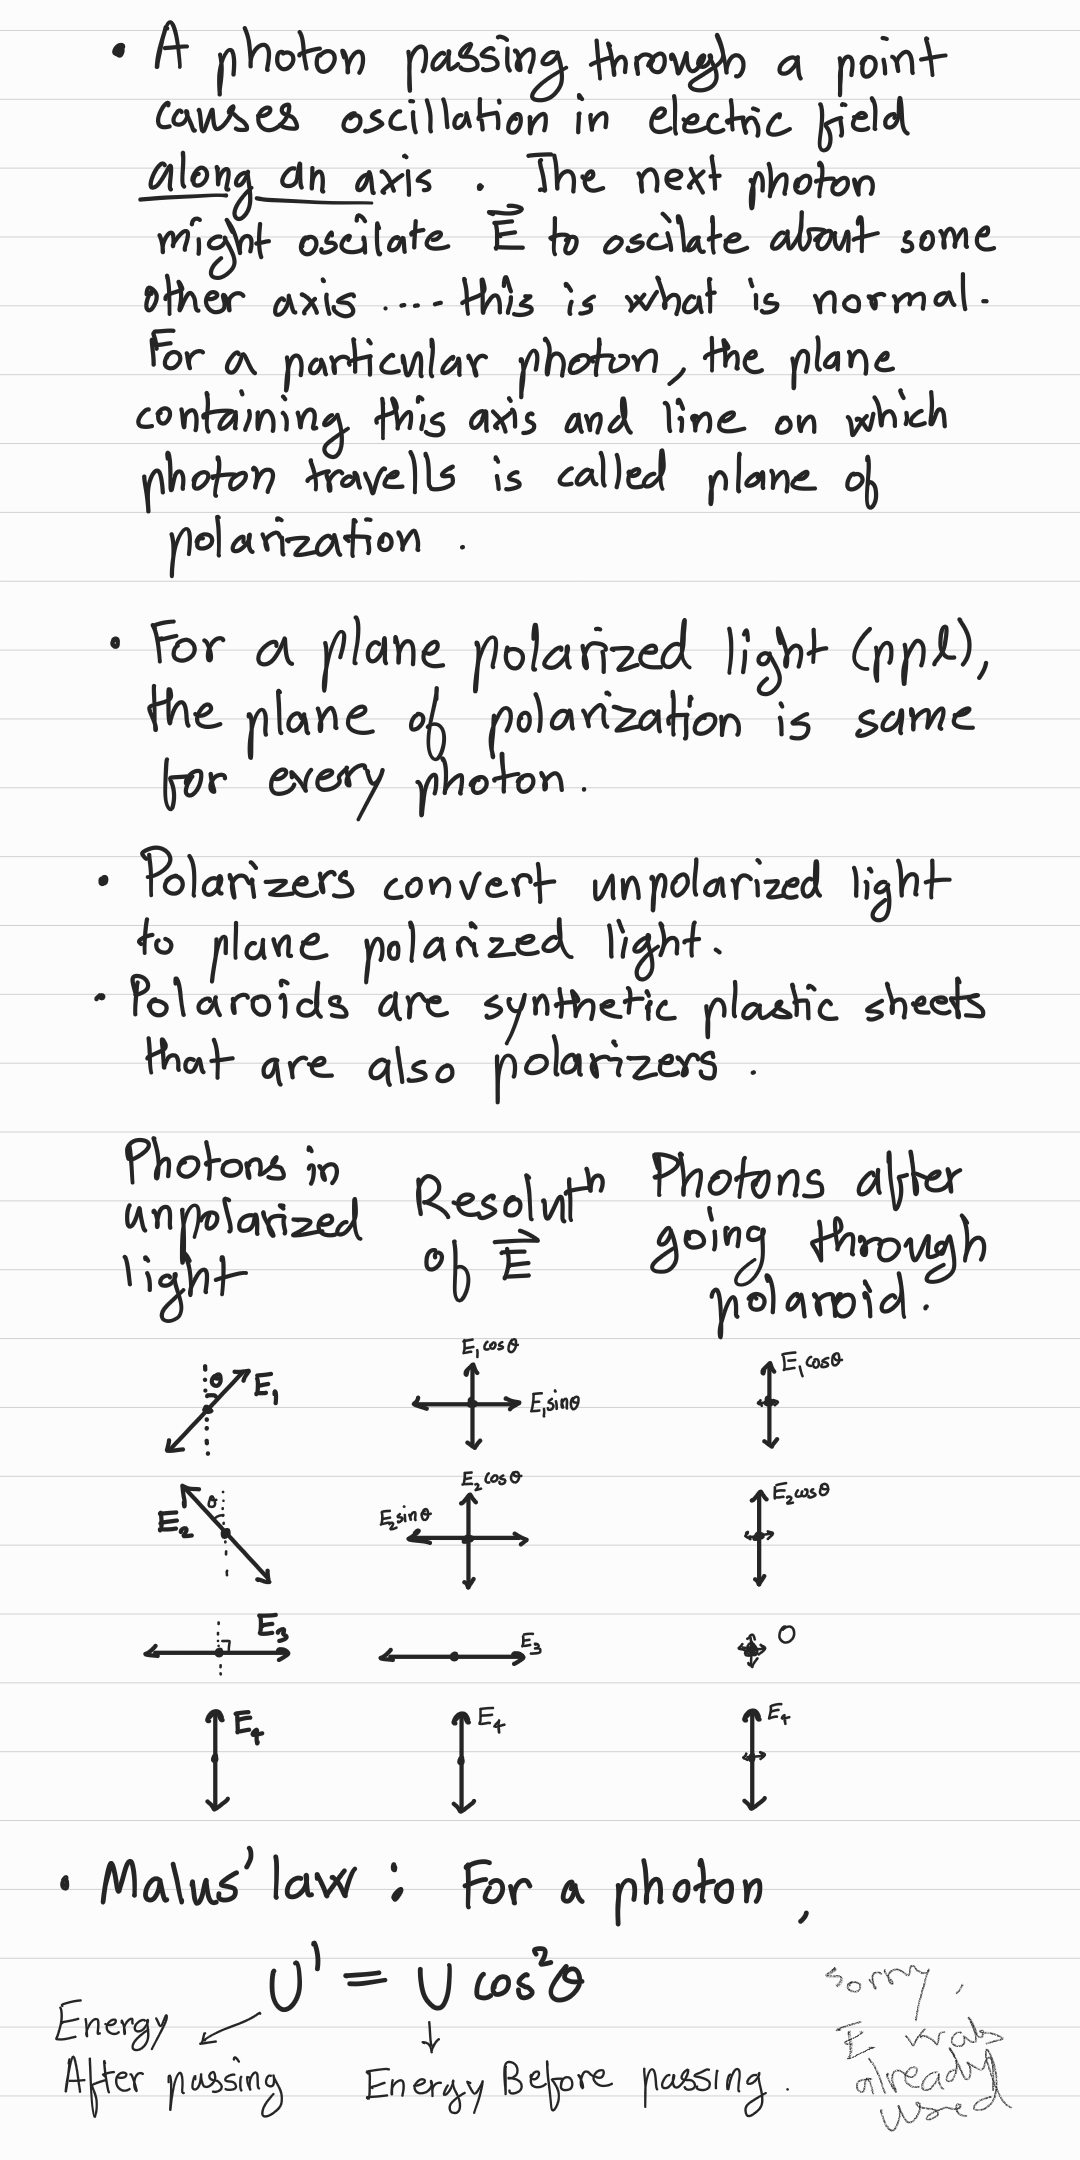 • A photon passing through a point
causes oscillation in electric field
along an axis. The next photon
might oscilate E⃗ to oscilate about some
other axis .... this is what is normal.
For a particular photon, the plane
containing this axis and line on which
photon travells is called plane of
polarization.
• For a plane polarized light (ppl),
the plane of polarization is same
for every photon.
• Polarizers convert unpolarized light
to plane polarized light.
• Polaroids are synthetic plastic sheets
that are also polarizers.
Photons in
unpolarized
light
Resolutⁿ
of E⃗
Photons after
going through
polaroid.
θ E₁
E₁cosθ
E₁sinθ
E₁cosθ
θ
E₂
E₂cosθ
E₂sinθ
E₂cosθ
E₃
E₃
0
E₄
E₄
E₄
• Malus' law : For a photon,
U' = U cos²θ
Energy
After passing
Energy Before passing.
sorry,
E was
already
used